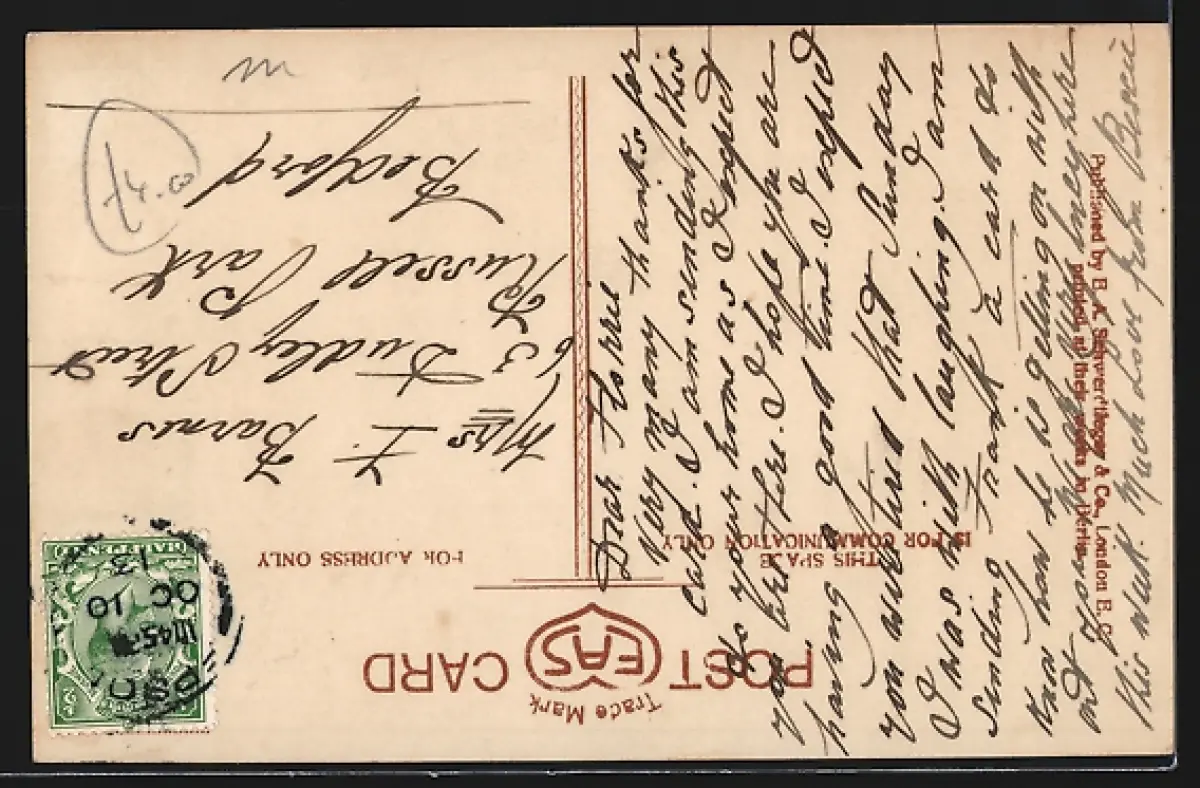 POST CARD
Trade Mark
EAS
THIS SPACE
IS FOR COMMUNICATION ONLY
FOR ADDRESS ONLY
Dear Florrie
Very many thanks for
card. I am sending this
to your home as I expect
you are there. I hope you are
having a good time. I expect
you were tired that Sunday
I was with laughing. I am
sending Frank a card to
know how he is getting on with
out you.
this week. Much Love from Bessie
Miss F. Barnes
63 Dudley Street
Russell Park
Bedford
Published by E. A. Schwerdtfeger & Co., London E. C.
printed at their works in Berlin.
HALFPENNY
OC 10
13
£4.00
m